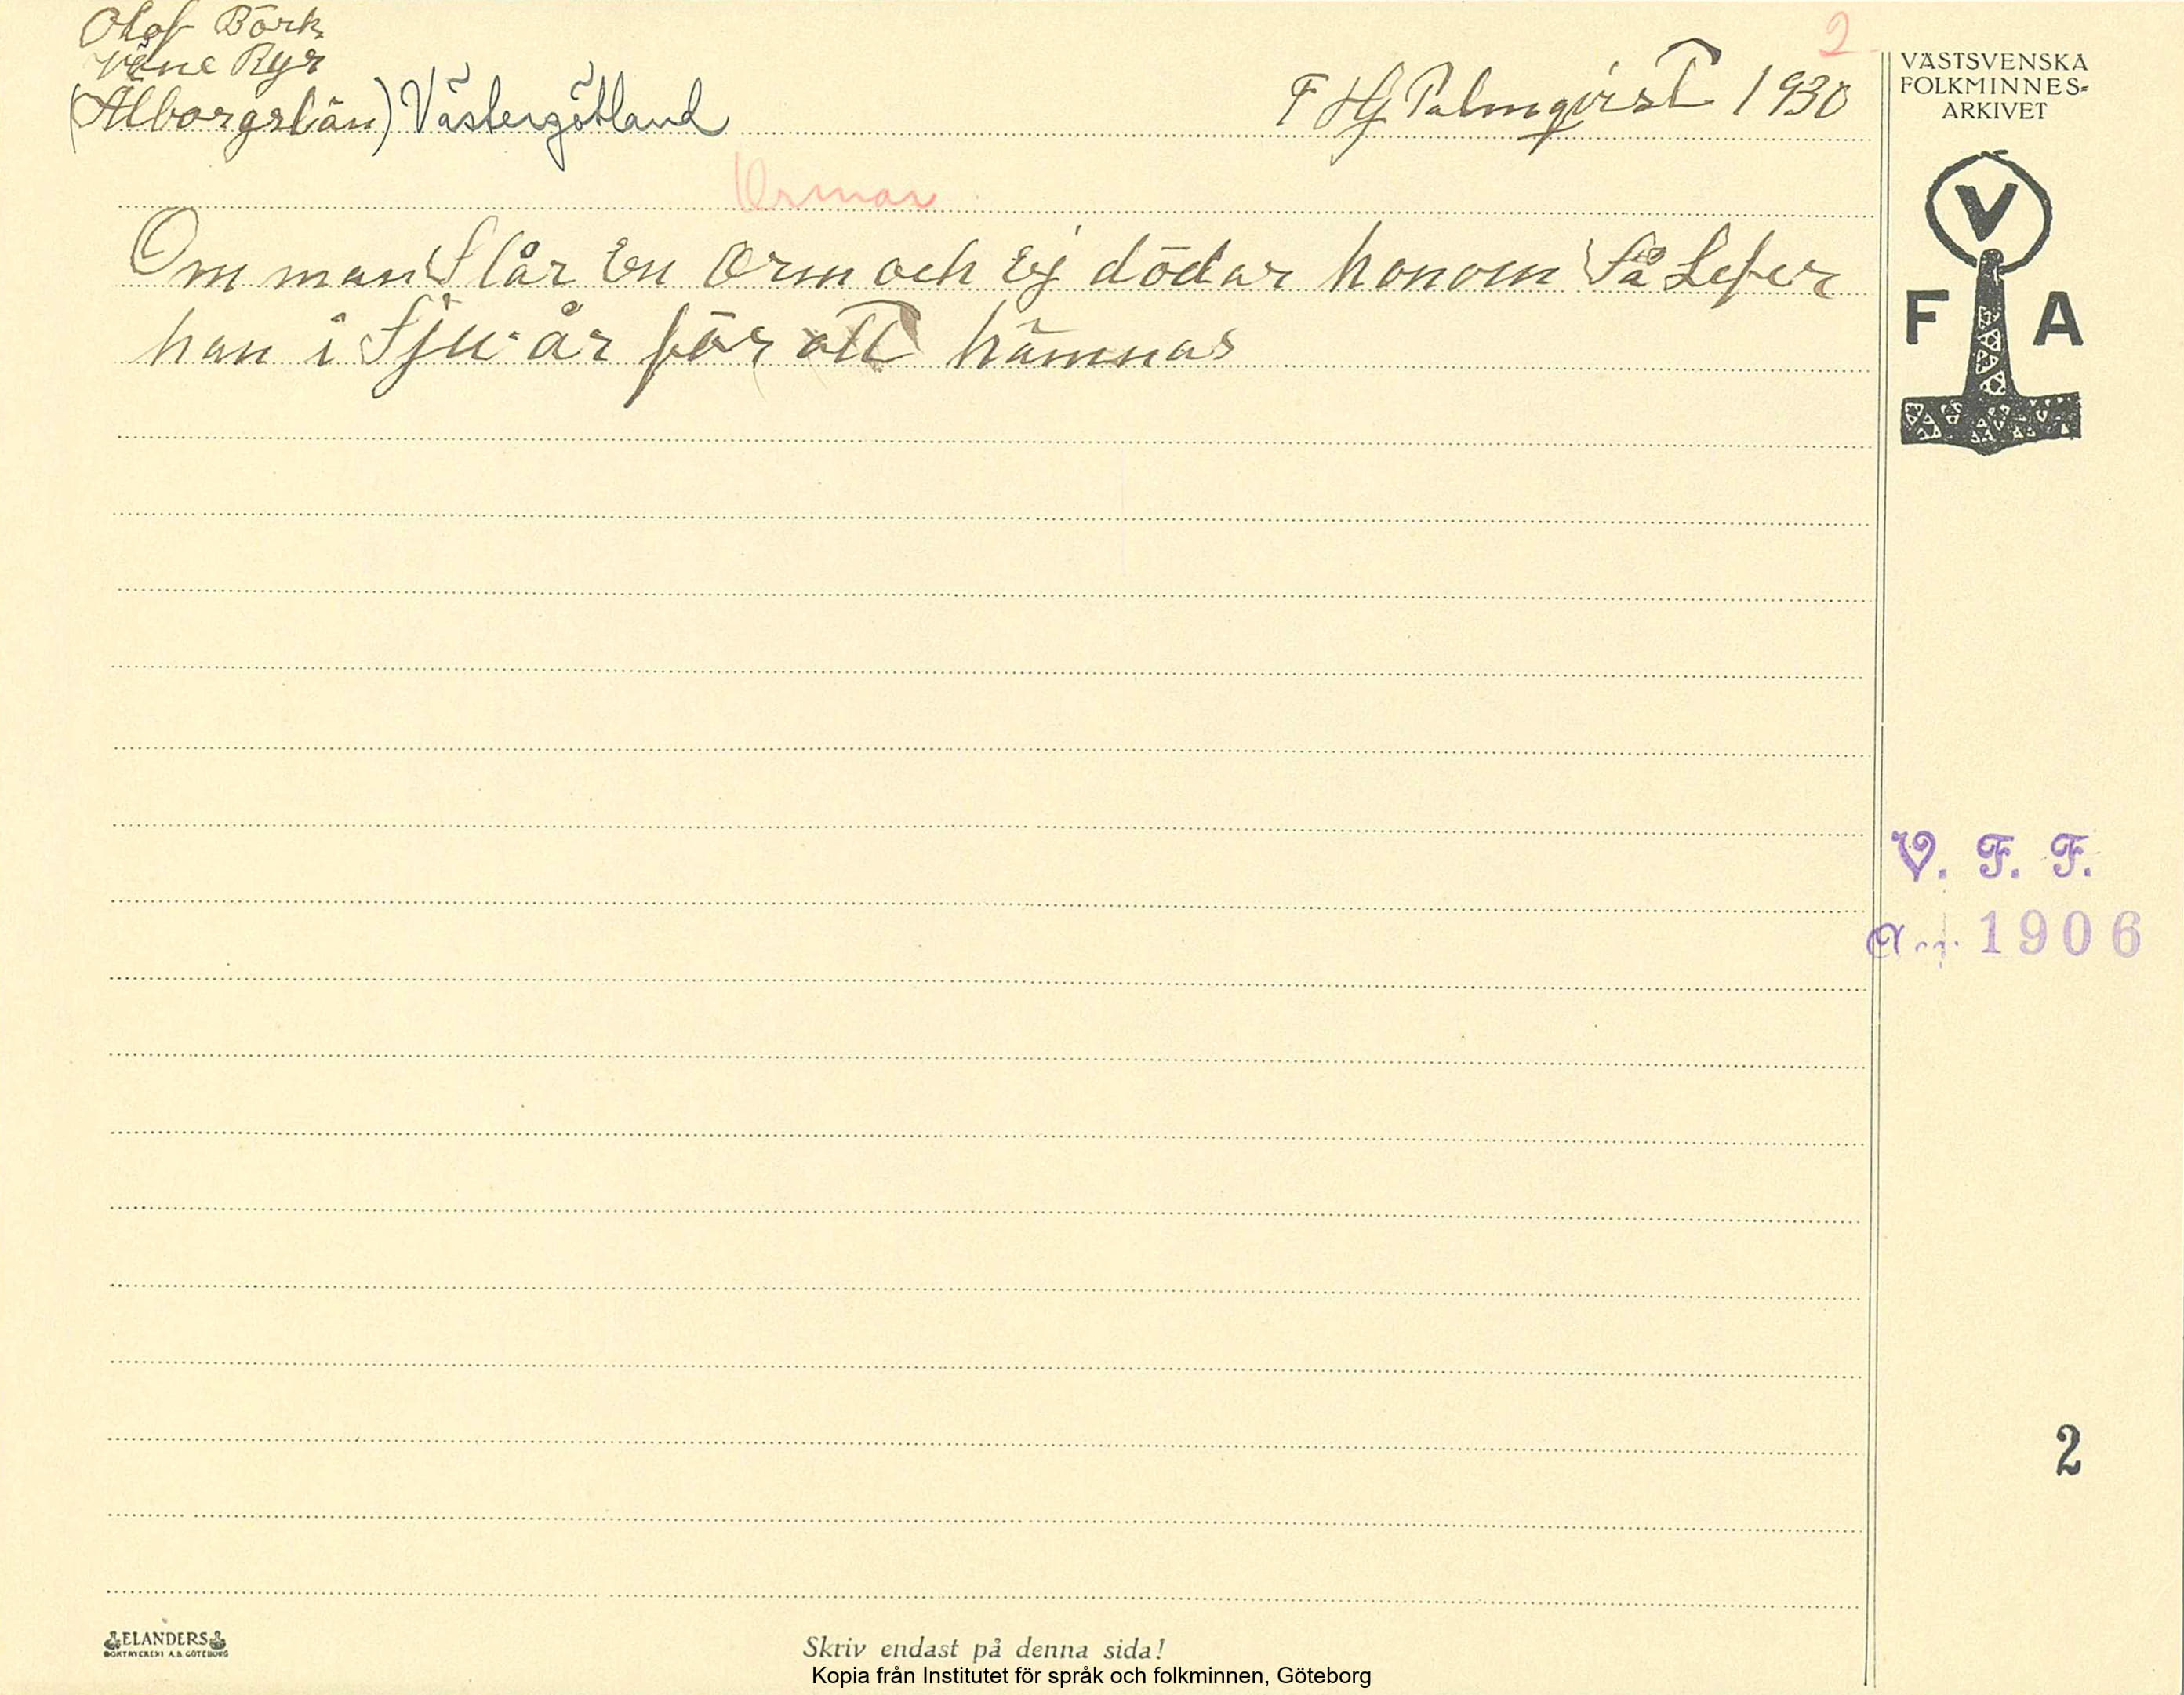 Olof Börk
Väne Ryr
(Älborgslän) Västergötland
F Hj Palmqvist 1930
2
VÄSTSVENSKA
FOLKMINNES-
ARKIVET
V
F A
Ormar
Om man Slår En Orm och Ej dödar honom Så Lefver
han i Sju år för att hämnas
V. F. F.
1906
2
ELANDERS
BOKTRYCKERI A.B. GÖTEBORG
Skriv endast på denna sida!
Kopia från Institutet för språk och folkminnen, Göteborg